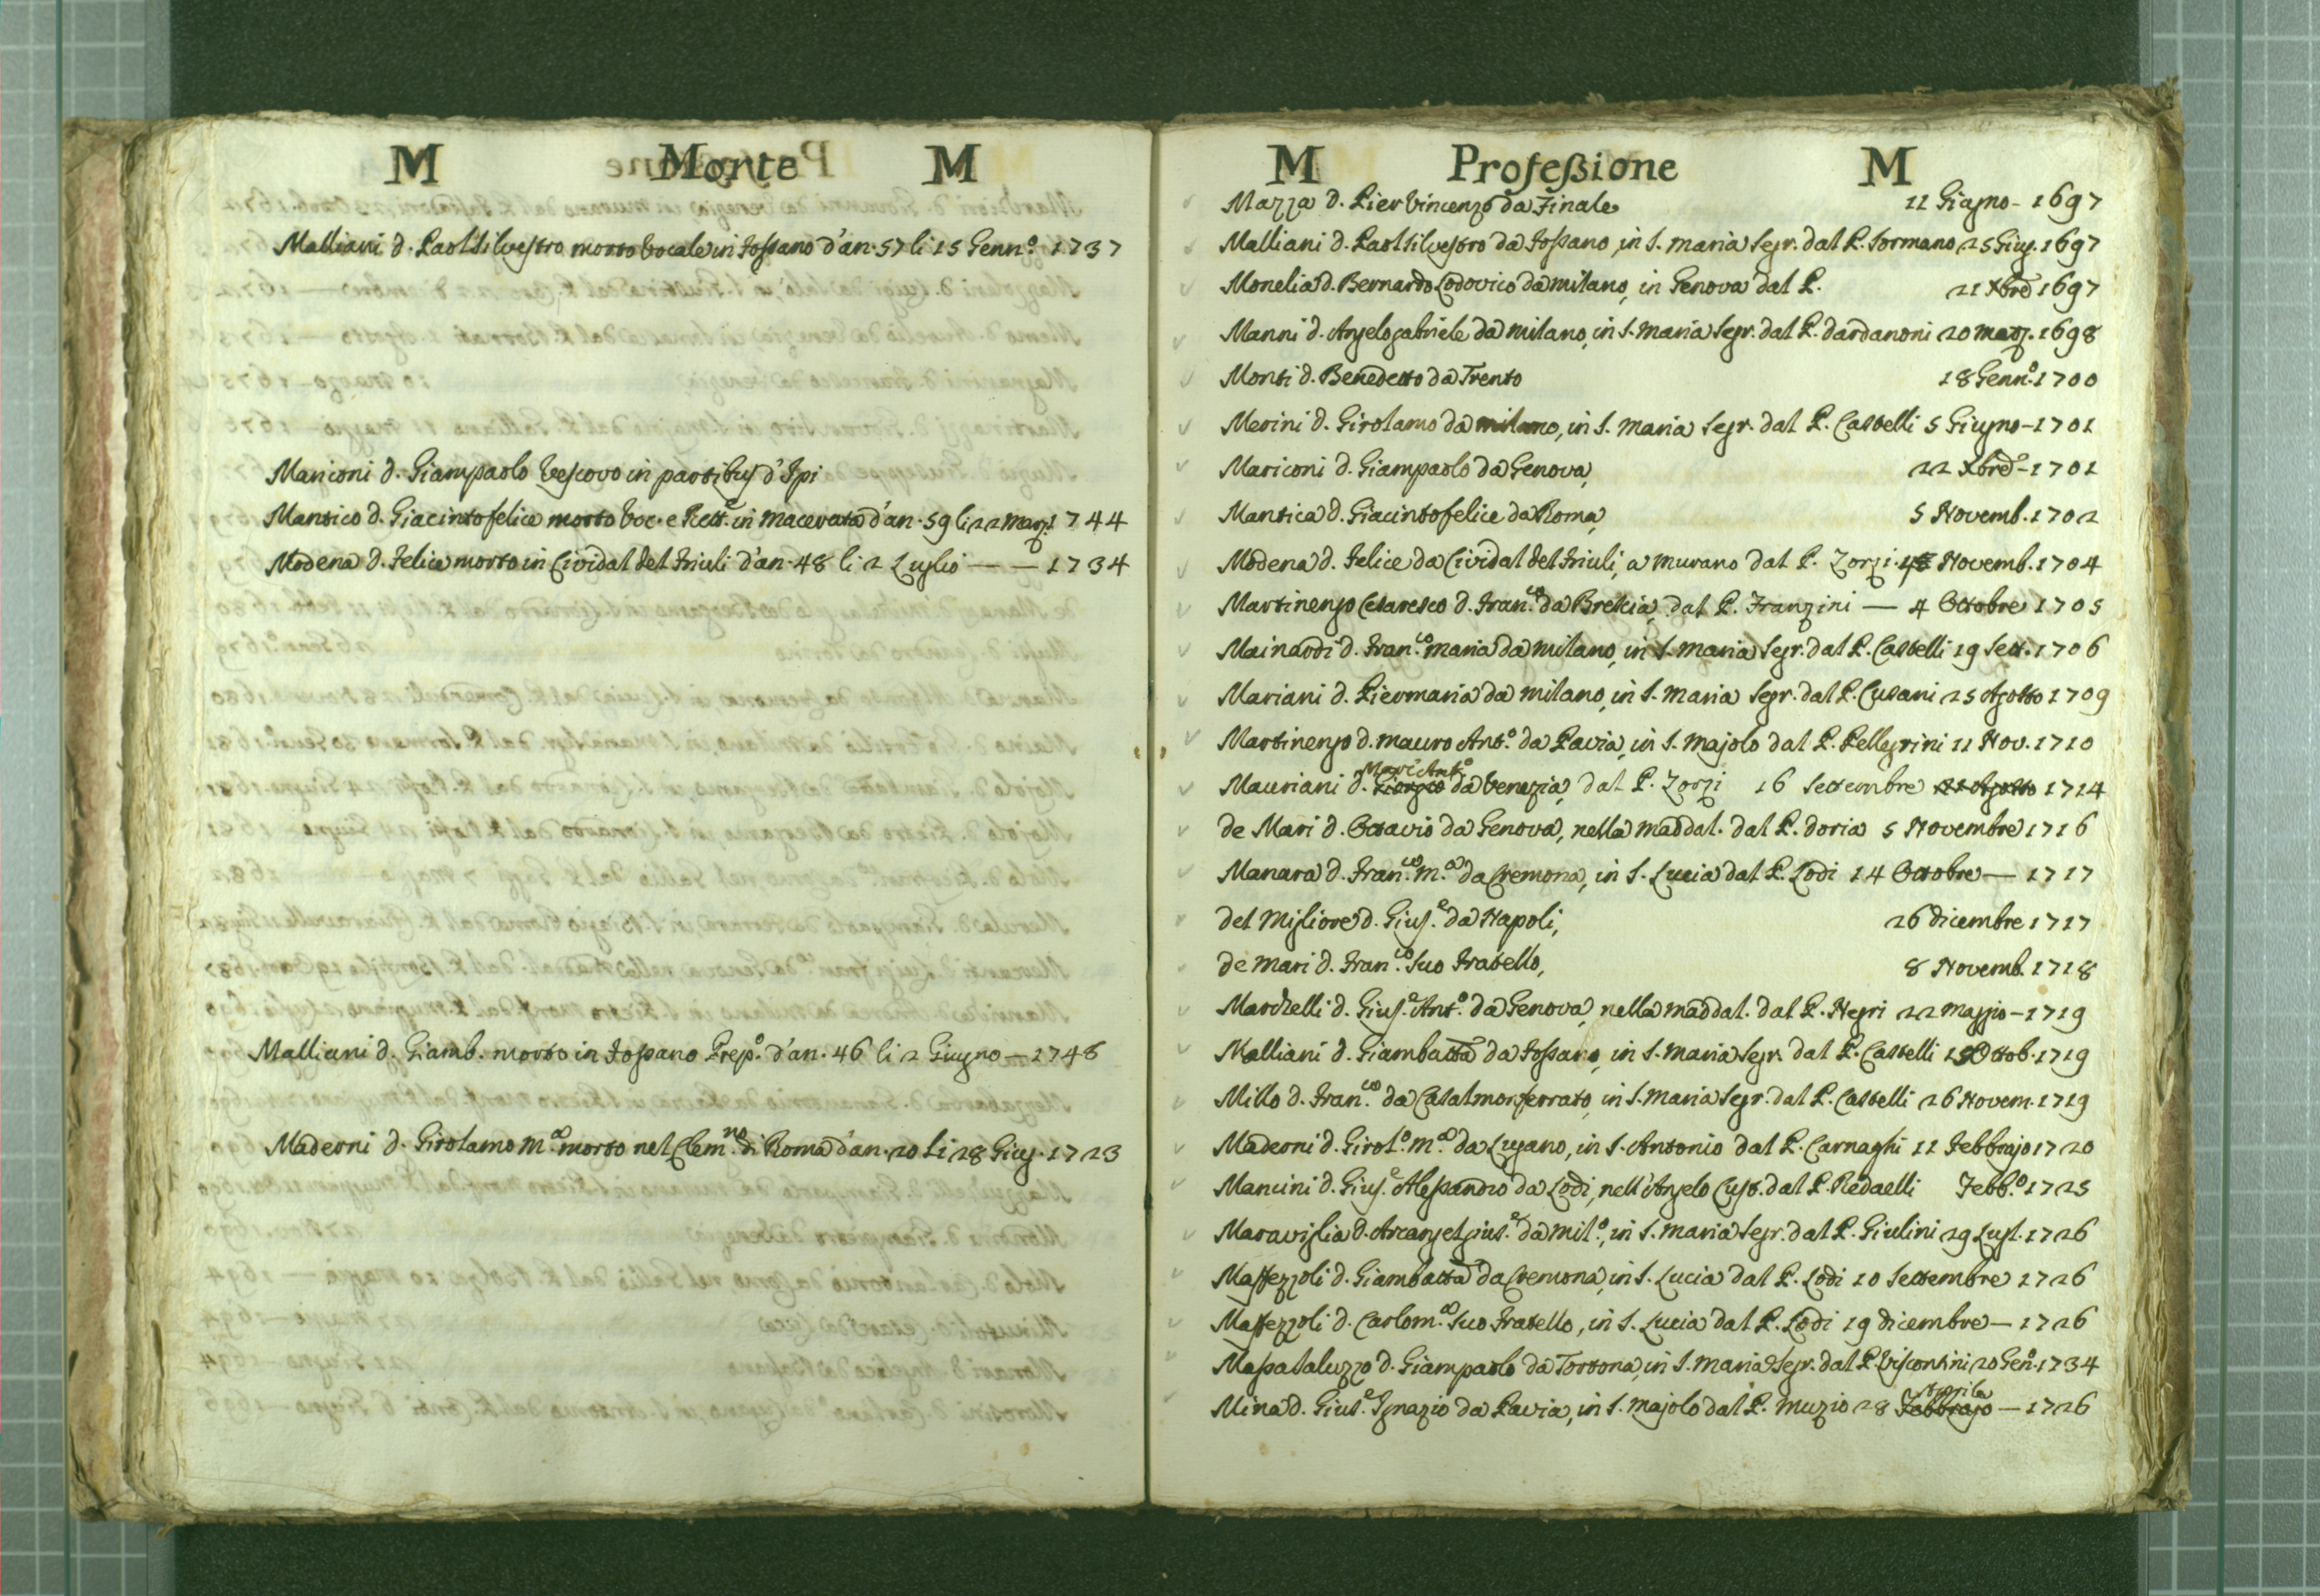 M Morte M
Malliani d. Paolsilvestro morto vocale in Fossano d'an. 57 li 15 Genn.o 1737
Mariconi d. Giampaolo Vescovo in partibus d'Ipi
Mantico d. Giacintofelice morto voc. e Rett. in Macerata d'an. 59 li 22 Marz. 1744
Modena d. Felice morto in Cividal del Friuli d'an. 48 li 2 Luglio — — 1734
Malliani d. Giamb. morto in Fossano Prep.o d'an. 46 li 2 Giugno — 1748
Maderni d. Girolamo M.a morto nel Clem.no di Roma d'an. 20 li 28 Giug. 1723
M Profeßione M
Mazza d. Pier Vincenzo da Finale 11 Giugno - 1697
Malliani d. Paolsilvestro da Fossano, in S. Maria Segr. dal P. Sormano 25 Giug. 1697
Monelia d. Bernardo Lodovico da Milano, in Genova dal P. 21 Xbre 1697
Manni d. Angelogabriele da Milano, in S. Maria Segr. dal P. Dardanoni 20 Marz. 1698
Monti d. Benedetto da Trento 18 Genn.o 1700
Merini d. Girolamo da Milano, in S. Maria Segr. dal P. Castelli 5 Giugno - 1701
Mariconi d. Giampaolo da Genova, 22 Xbre - 1701
Mantica d. Giacintofelice da Roma, 5 Novemb. 1702
Modena d. Felice da Cividal del Friuli, a Murano dal P. Zorzi Novemb. 1704
Martinengo Cesaresco d. Fran.co da Brescia, dal P. Franzini — 4 Ottobre 1705
Mainardi d. Fran.co Maria da Milano, in S. Maria Segr. dal P. Castelli 19 Sett. 1706
Mariani d. Piermaria da Milano, in S. Maria Segr. dal P. Cusani 25 Agosto 1709
Martinengo d. Mauro Ant.o da Pavia, in S. Majolo dal P. Pellegrini 11 Nov. 1710
Mauriani d. Giorgio Marc'Ant.o da Venezia, dal P. Zorzi 16 Settembre 21 Agosto 1714
de Mari d. Ottavio da Genova, nella Maddal. dal P. Doria 5 Novembre 1716
Manara d. Fran.co M.a da Cremona, in S. Lucia dal P. Lodi 14 Ottobre — 1717
del Migliore d. Gius.e da Napoli, 26 Dicembre 1717
de Mari d. Fran.co suo Fratello, 8 Novemb. 1718
Marchelli d. Gius.e Ant.o da Genova, nella Maddal. dal P. Negri 22 Maggio - 1719
Malliani d. Giambatta da Fossano, in S. Maria Segr. dal P. Castelli 15 Ottob. 1719
Millo d. Fran.co da Casalmonferrato, in S. Maria Segr. dal P. Castelli 26 Novem. 1719
Maderni d. Girol.o M.a da Lugano, in S. Antonio dal P. Carnaghi 11 Febbrajo 1720
Mancini d. Gius.e Alessandro da Lodi, nell'Angelo Cust. dal P. Redaelli Febb.o 1725
Maraviglia d. Arcangelgius.e da Mil.o, in S. Maria Segr. dal P. Giulini 29 Lugl. 1726
Maffezzoli d. Giambatta da Cremona, in S. Lucia dal P. Lodi 10 Settembre 1726
Maffezzoli d. Carlom.a suo Fratello, in S. Lucia dal P. Lodi 19 Dicembre — 1726
Massasaluzzo d. Giampaolo da Tortona, in S. Maria Segr. dal P. Viscontini 20 Gen.o 1734
Mina d. Gius.e Ignazio da Pavia, in S. Majolo dal P. Muzio 28 Febbrajo Aprile — 1726